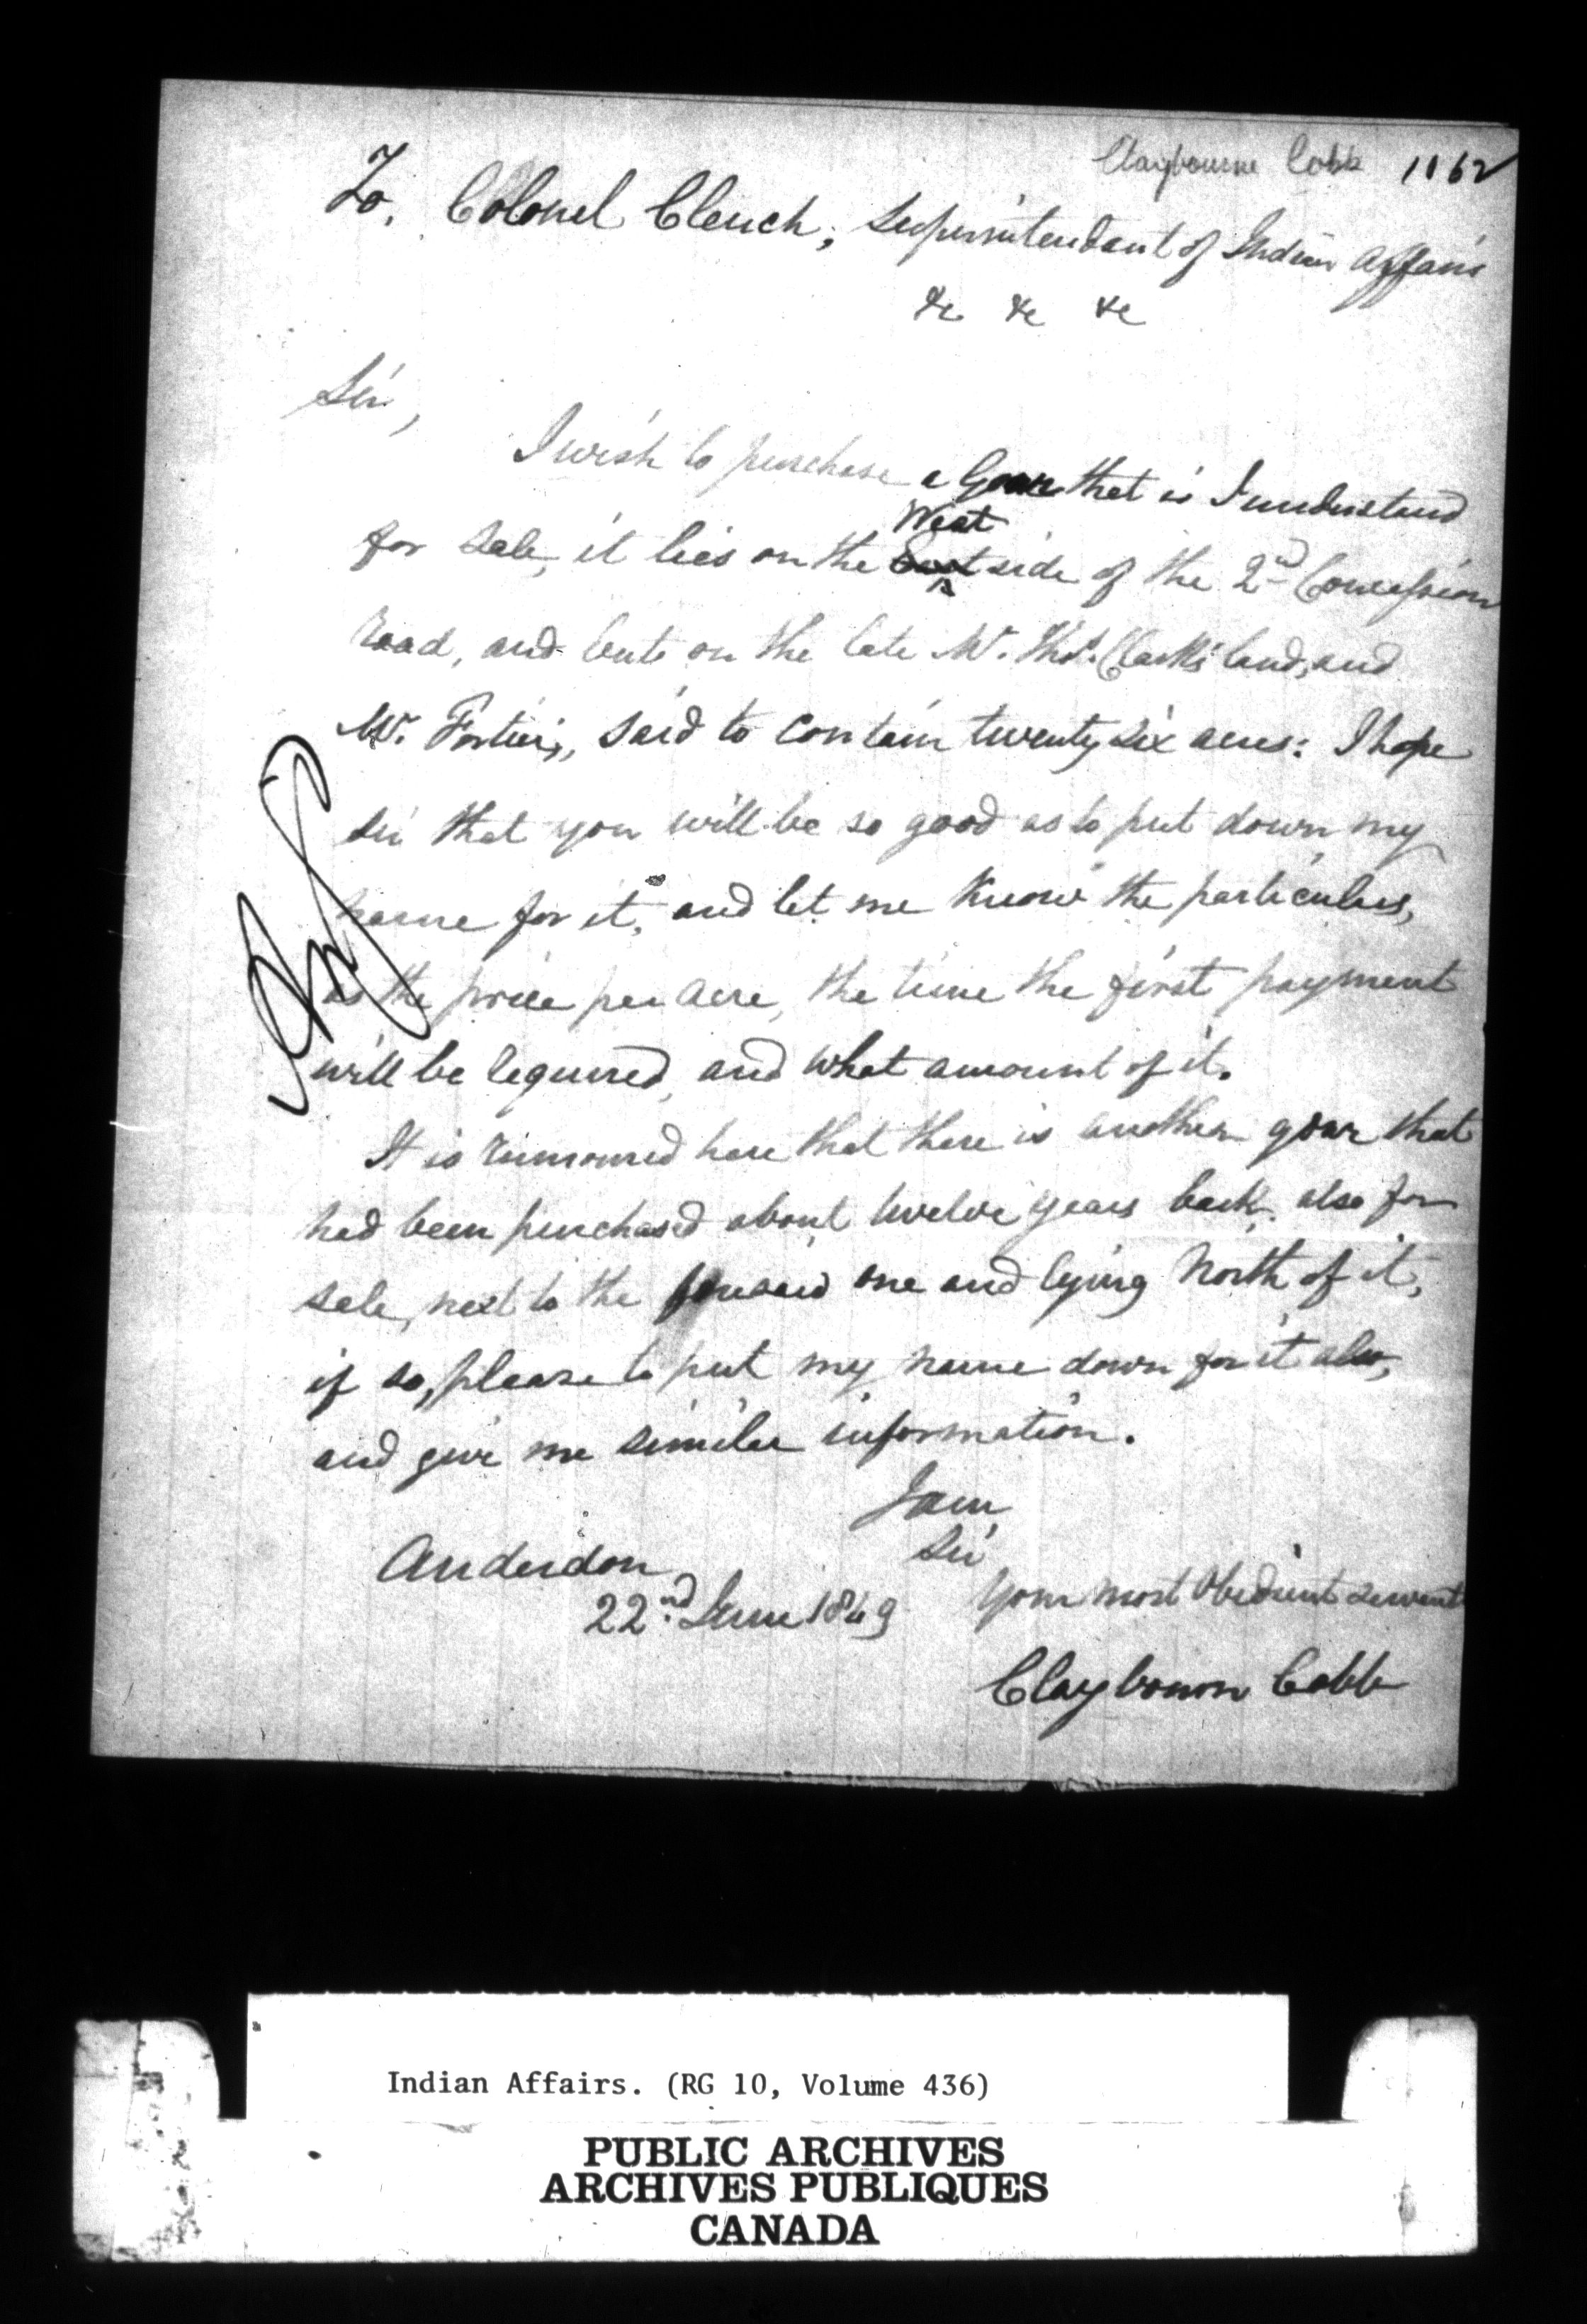 Claybourne Cobb 1162
To, Colonel Clench, Superintendant of Indian Affairs
&c &c &c
Sir,
I wish to purchase a Goar that is I understand
West
for sale, it lies on the East side of the 2nd Concession
road, and buts on the late Mr. Thos. Clark's land, and
Mr. Fortier's, said to contain twenty six acres: I hope
sir that you will be so good as to put down my
name for it, and let me know the particulars,
as the price per acre, the time the first payment
will be required, and what amount of it.
It is rumoured here that there is another goar that
had been purchased about twelve years back, also for
sale, next to the foresaid one and lying North of it,
if so, please to put my name down for it also,
and give me similar information.
I am
Sir
Anderdon
22nd June 1849 your most Obedient servant
Claybourn Cobb
Indian Affairs. (RG 10, Volume 436)
PUBLIC ARCHIVES
ARCHIVES PUBLIQUES
CANADA